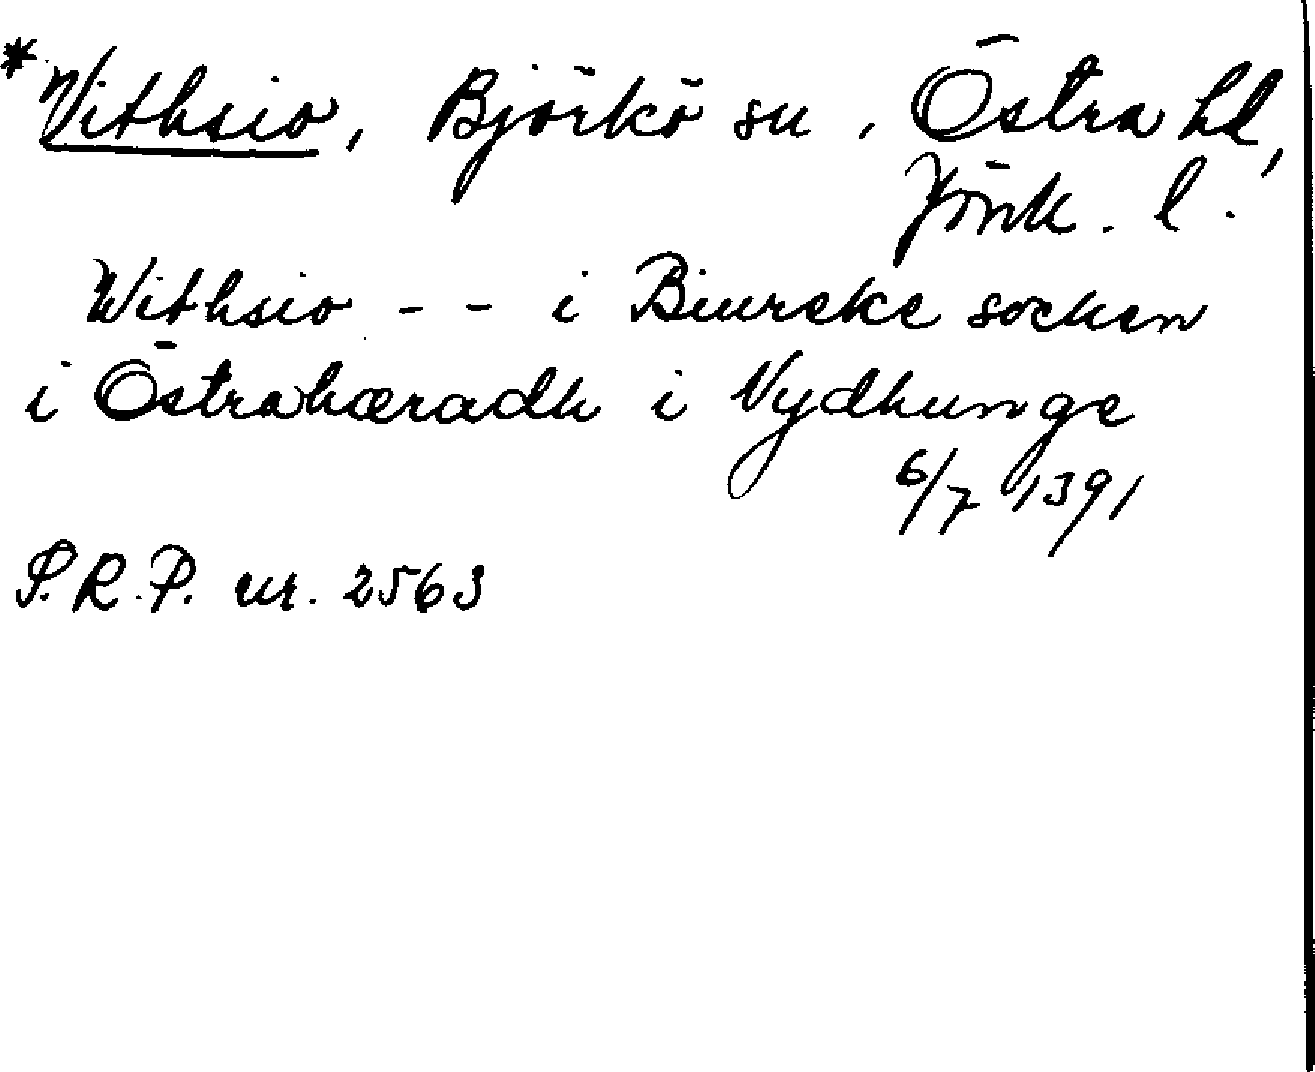 *Vithsio, Björkö sn, Östra hd,
Jönk. l.
Withsio - - i Biureke socken
i Östrahæradh i Nydhunge
6/7 1391
S.R.P. nr. 2563